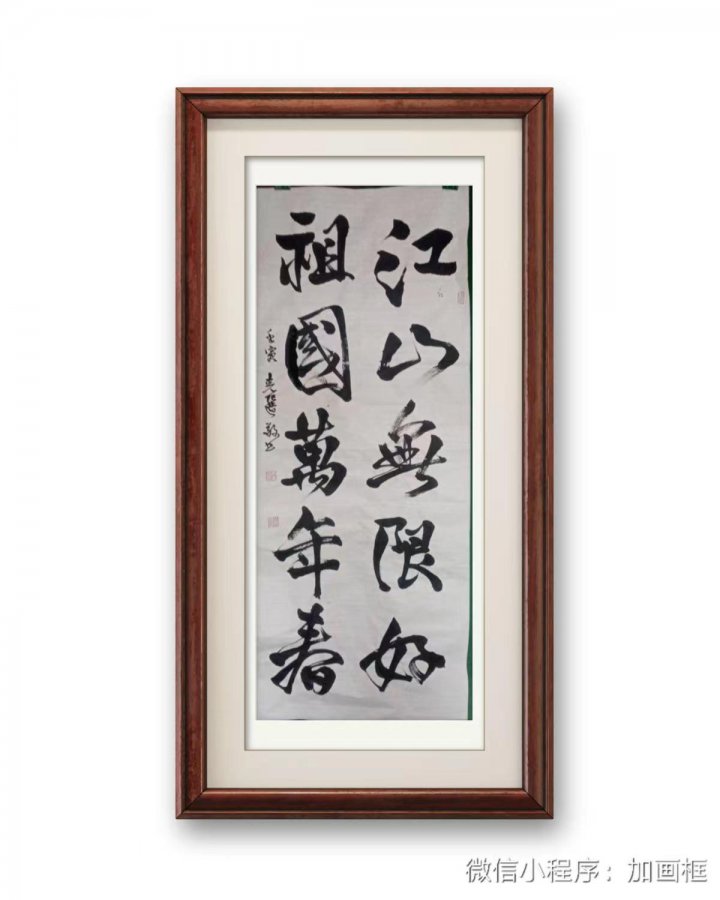 江山無限好
祖國萬年春
壬寅
微信小程序：加画框